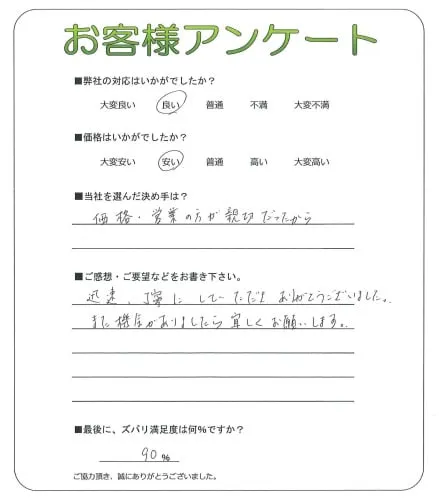 お客様アンケート
■弊社の対応はいかがでしたか？
大変良い 良い 普通 不満 大変不満
■価格はいかがでしたか？
大変安い 安い 普通 高い 大変高い
■当社を選んだ決め手は？
価格・営業の方が親切だったから
■ご感想・ご要望などをお書き下さい。
迅速、丁寧にしていただき ありがとうございました。
また機会がありましたら宜しくお願いします。
■最後に、ズバリ満足度は何%ですか？
90%
ご協力頂き、誠にありがとうございました。